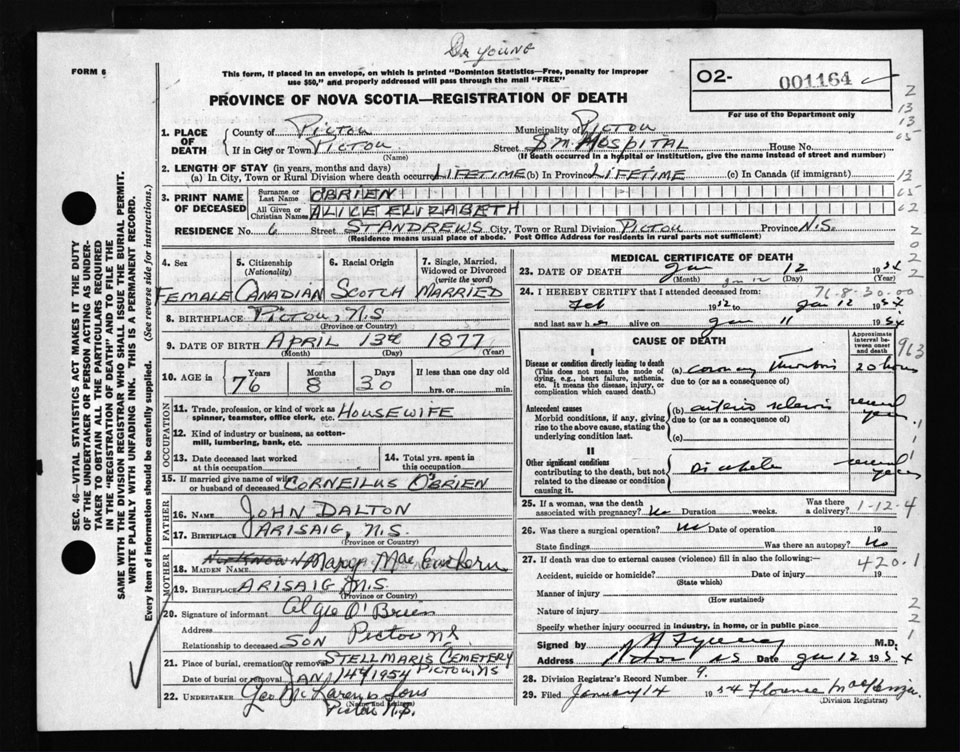 Dr YOUNG
FORM 6
This form, if placed in an envelope, on which is printed "Dominion Statistics—Free, penalty for improper
use $50," and properly addressed will pass through the mail "FREE"
PROVINCE OF NOVA SCOTIA—REGISTRATION OF DEATH
O2- 001164
For use of the Department only
1. PLACE OF DEATH
County of PICTOU Municipality of PICTOU
If in City or Town PICTOU Street S M. HOSPITAL House No.
(Name) (If death occurred in a hospital or institution, give the name instead of street and number)
2. LENGTH OF STAY (in years, months and days)
(a) In City, Town or Rural Division where death occurred LIFETIME (b) In Province LIFETIME (c) In Canada (if immigrant)
3. PRINT NAME OF DECEASED
Surname or Last Name O'BRIEN
All Given or Christian Names ALICE ELIZABETH
RESIDENCE No. 6 Street ST ANDREWS City, Town or Rural Division PICTOU Province N.S.
(Residence means usual place of abode. Post Office Address for residents in rural parts not sufficient)
4. Sex 5. Citizenship (Nationality) 6. Racial Origin 7. Single, Married, Widowed or Divorced (write the word)
FEMALE CANADIAN SCOTCH MARRIED
8. BIRTHPLACE PICTOU, N.S
(Province or Country)
9. DATE OF BIRTH APRIL 13th 1877
(Month) (Day) (Year)
10. AGE in Years Months Days If less than one day
76 8 30 hrs. or min.
OCCUPATION
11. Trade, profession, or kind of work as spinner, teamster, office clerk, etc. HOUSEWIFE
12. Kind of industry or business, as cotton-mill, lumbering, bank, etc.
13. Date deceased last worked at this occupation
14. Total yrs. spent in this occupation
15. If married give name of wife or husband of deceased CORNEILUS O'BRIEN
FATHER
16. NAME JOHN DALTON
17. BIRTHPLACE ARISAIG, N.S.
(Province or Country)
MOTHER
18. MAIDEN NAME NOT KNOWN Mac Eachern
19. BIRTHPLACE ARISAIG N.S.
(Province or Country)
20. Signature of informant O'Brien
Address Pictou N.S.
Relationship to deceased SON
21. Place of burial, cremation or removal STELLMARIS CEMETERY
PICTOU, NS
Date of burial or removal JAN 14th 1954
22. UNDERTAKER Geo McLaren & Sons
(Name and Address)
Pictou N.S.
MEDICAL CERTIFICATE OF DEATH
23. DATE OF DEATH Jan 12 1954
(Month) (Day) (Year)
24. I HEREBY CERTIFY that I attended deceased from: 76-8-30-00
Feb 1952 to Jan 12 1954
and last saw her alive on Jan 11 1954
CAUSE OF DEATH
Approximate interval between onset and death
I
Disease or condition directly leading to death
(This does not mean the mode of dying, e.g., heart failure, asthenia, etc. It means the disease, injury, or complication which caused death.)
(a) coronary thrombosis 20 hours
due to (or as a consequence of)
Antecedent causes
Morbid conditions, if any, giving rise to the above cause, stating the underlying condition last.
(b) arterio sclerosis several years
due to (or as a consequence of)
(c)
II
Other significant conditions
contributing to the death, but not related to the disease or condition causing it.
Diabetes several years
25. If a woman, was the death associated with pregnancy? No Duration weeks. Was there a delivery? 1-12-4
26. Was there a surgical operation? No Date of operation 19
State findings Was there an autopsy? No
27. If death was due to external causes (violence) fill in also the following: 420.1
Accident, suicide or homicide? Date of injury 19
(State which)
Manner of injury
(How sustained)
Nature of injury
Specify whether injury occurred in industry, in home, or in public place
Signed by M.D.
Address Pictou NS Date Jan 12 1954
28. Division Registrar's Record Number 9.
29. Filed January 14 1954 Florence MacKenzie
(Division Registrar)
SEC. 46—VITAL STATISTICS ACT MAKES IT THE DUTY
OF THE UNDERTAKER OR PERSON ACTING AS UNDER-
TAKER TO OBTAIN ALL THE PARTICULARS REQUIRED
IN THE "REGISTRATION OF DEATH" AND TO FILE THE
SAME WITH THE DIVISION REGISTRAR WHO SHALL ISSUE THE BURIAL PERMIT.
WRITE PLAINLY WITH UNFADING INK. THIS IS A PERMANENT RECORD.
Every item of information should be carefully supplied. (See reverse side for instructions.)